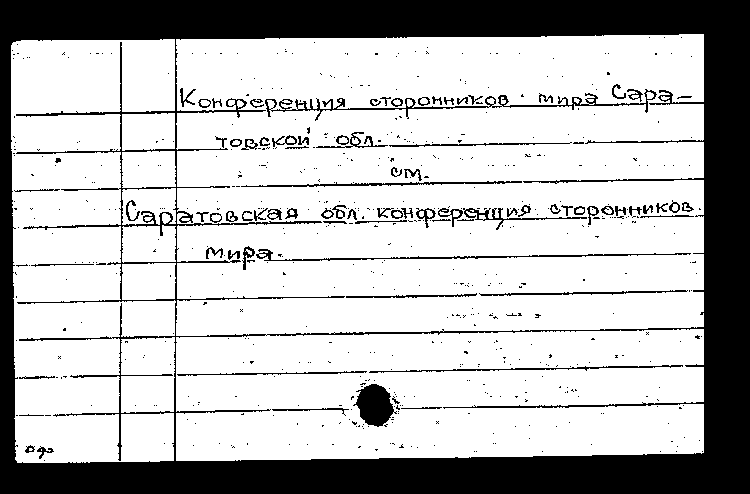 Конференция сторонников мира Сара-
товской обл.
см.
Саратовская обл. конференция сторонников
мира.